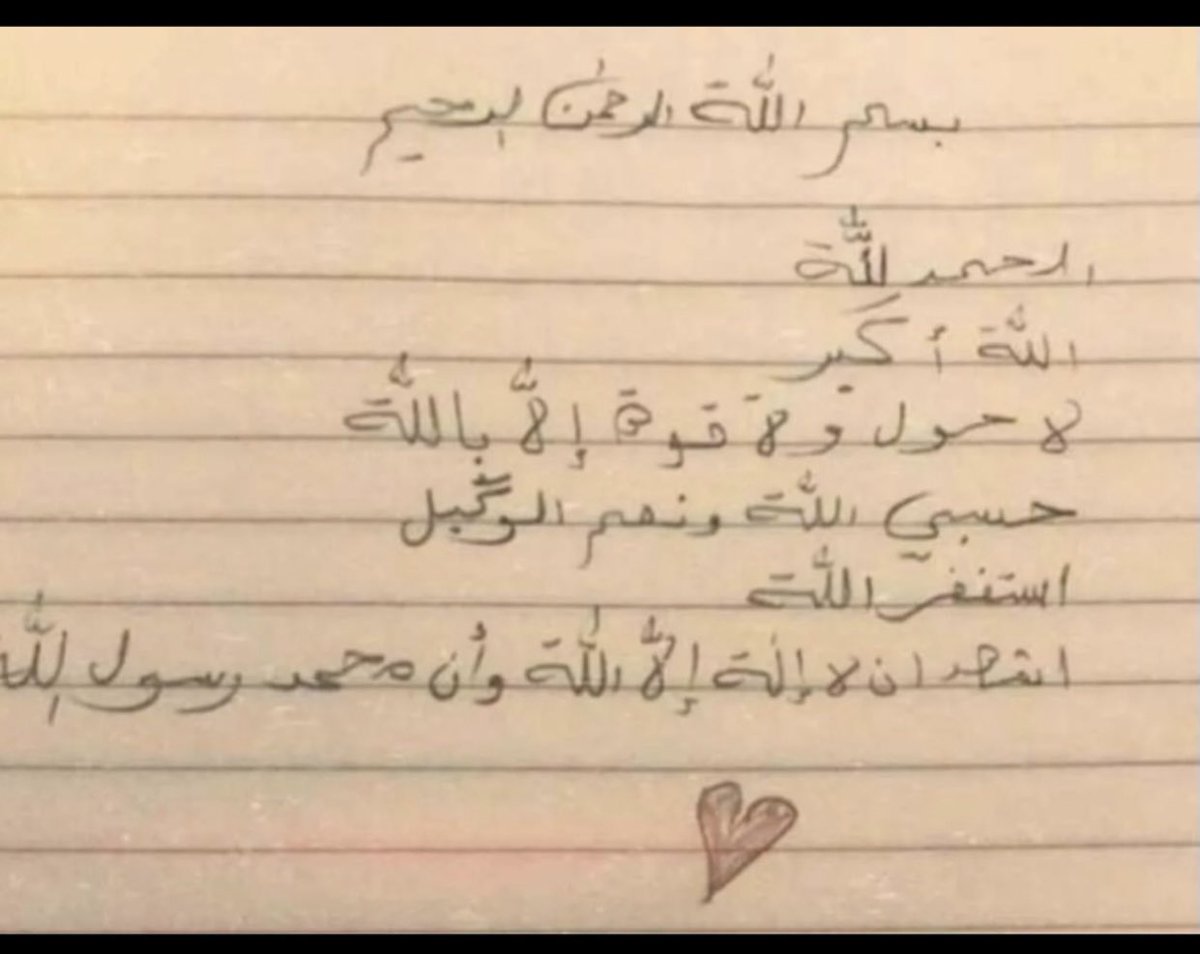 بسم اللّٰة الرحمٰن الرحيم
الحمد للّٰة
اللّٰة أكبر
لا حول وَ لاَ قوة إلاّ باللّٰة
حسبي اللّٰة ونعم الوكيل
استغفر اللّٰة
اشهد ان لا إلة إلاّ اللّٰة وأن محمد رسول اللّٰة